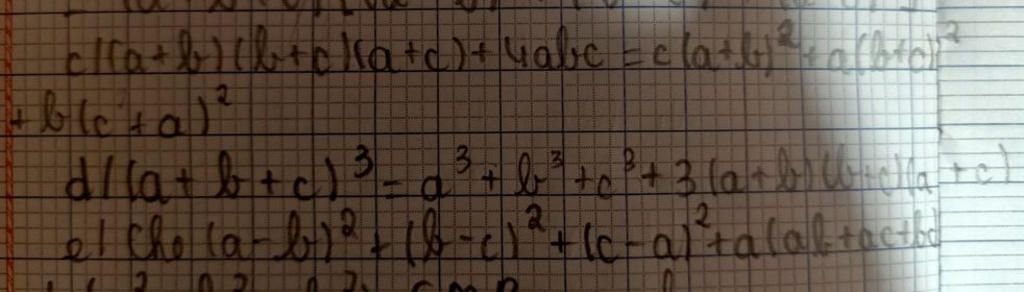 c/(a+b)(b+c)(a+c)+4abc=c(a+b)²+a(b+c)²
+b(c+a)²
d/(a+b+c)³=a³+b³+c³+3(a+b)(b+c)(a+c)
e/ Cho (a-b)²+(b-c)²+(c-a)²+a(ab+ac+bc)